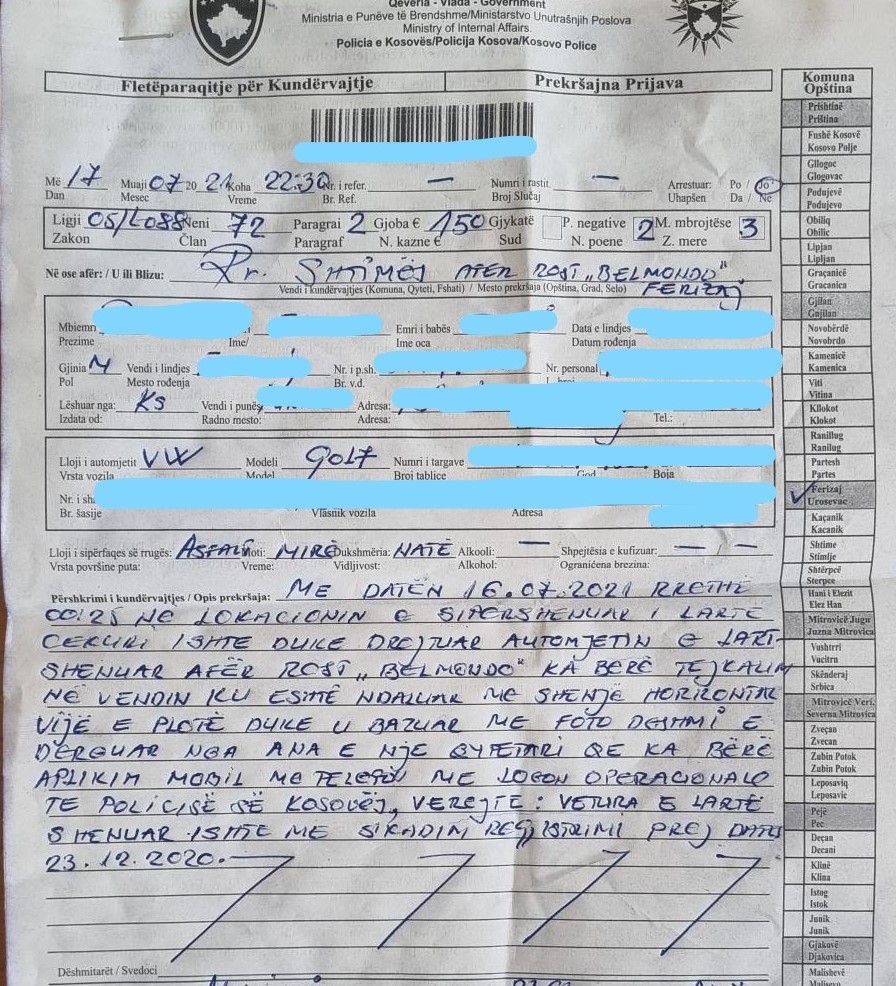 Qeveria - Vlada - Government
Ministria e Punëve të Brendshme/Ministarstvo Unutrašnjih Poslova
Ministry of Internal Affairs.
Policia e Kosovës/Policija Kosova/Kosovo Police
Fletëparaqitje për Kundërvajtje Prekršajna Prijava
Më 17 Muaji 07 20 21 Koha 22:30 Nr. i refer. — Numri i rastit. — Arrestuar: Po / Jo
Dan Mesec Vreme Br. Ref. Broj Slučaj Uhapšen Da / Ne
Ligji 05/L088 Neni 72 Paragrai 2 Gjoba € 150 Gjykatë P. negative 2 M. mbrojtëse 3
Zakon Član Paragraf N. kazne € Sud N. poene Z. mere
Në ose afër: / U ili Blizu: Rr. SHTIMES AFER ROST „BELMONDO"
Vendi i kundërvajtjes (Komuna, Qyteti, Fshati) / Mesto prekršaja (Opština, Grad, Selo) FERIZAJ
Mbiemr Emri i babës Data e lindjes
Prezime Ime/ Ime oca Datum rođenja
Gjinia M Vendi i lindjes Nr. i p.sh. Nr. personal
Pol Mesto rođenja Br. v.d.
Lëshuar nga: KS Vendi i punës Adresa:
Izdata od: Radno mesto: Adresa: Tel.:
Lloji i automjetit VW Modeli GOLF Numri i targave
Vrsta vozila Model Broj tablice God Boja
Nr. i sha
Br. šasije Vlasnik vozila Adresa
Lloji i sipërfaqes së rrugës: ASFALT moti: MIRË Dukshmëria: NATË Alkooli: — Shpejtësia e kufizuar: — / —
Vrsta površine puta: Vreme: Vidljivost: Alkohol: Ograničena brezina:
Përshkrimi i kundërvajtjes / Opis prekršaja: ME DATËN 16.07.2021 RRETHE
00:25 NE LOKACIONIN E SIPERSHENUAR I LARTË
CEKURI ISHTE DUKE DREJTUAR AUTOMJETIN E LART-
SHENUAR AFËR ROST „BELMONDO" KA BËRË TEJKALIM
NË VENDIN KU ESHTË NDALUAR ME SHENJE HORIZONTAL
VIJË E PLOTË DUKE U BAZUAR ME FOTO DESHMI E
DËRGUAR NGA ANA E NJE QYTETARI QE KA BËRË
APLIKIM MOBIL ME TELEFON ME LOGON OPERACIONALE
TE POLICISË SË KOSOVËS, VEREJTE: VETURA E LARTË
SHENUAR ISHTE ME SKADIM REGJISTRIMI PREJ DATES
23.12.2020.
Dëshmitarët / Svedoci
Komuna
Opština
Prishtinë
Priština
Fushë Kosovë
Kosovo Polje
Gllogoc
Glogovac
Podujevë
Podujevo
Obiliq
Obilic
Lipjan
Lipljan
Graçanicë
Gracanica
Gjilan
Gnjilan
Novobërdë
Novobrdo
Kamenicë
Kamenica
Viti
Vitina
Kllokot
Klokot
Ranillug
Ranilug
Partesh
Partes
Ferizaj
Urosevac
Kaçanik
Kacanik
Shtime
Stimlje
Shtërpcë
Sterpce
Hani i Elezit
Elez Han
Mitrovicë Jugu
Juzna Mitrovica
Vushtrri
Vucitrn
Skënderaj
Srbica
Mitrovicë Veri.
Severna Mitrovica
Zveçan
Zvecan
Zubin Potok
Zubin Potok
Leposaviq
Leposavic
Pejë
Pec
Deçan
Decani
Klinë
Klina
Istog
Istok
Junik
Junik
Gjakovë
Djakovica
Malishevë
Malisevo